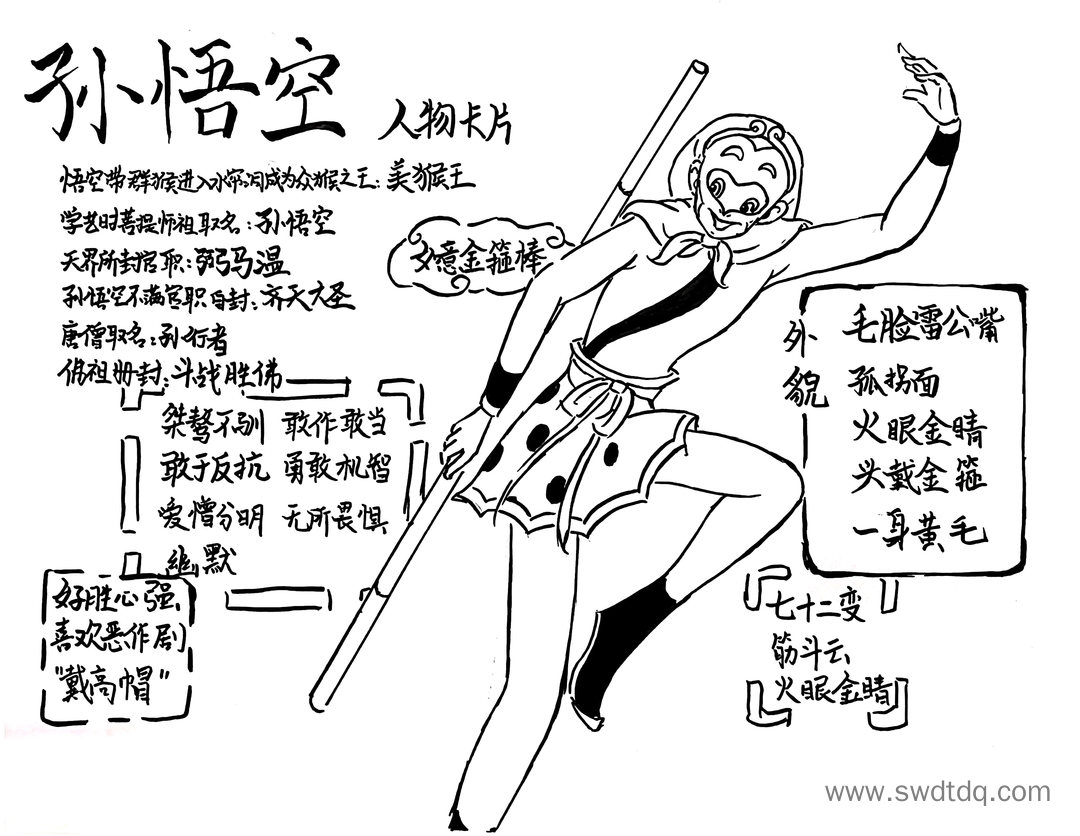 孙悟空 人物卡片
悟空带群猴进入水帘洞成为众猴之王：美猴王
学艺时菩提师祖取名：孙悟空
天界所封官职：弼马温
孙悟空不满官职自封：齐天大圣
唐僧取名：孙行者
佛祖册封：斗战胜佛
如意金箍棒
桀骜不驯 敢作敢当
敢于反抗 勇敢机智
爱憎分明 无所畏惧
幽默
好胜心强、
喜欢恶作剧
"戴高帽"
外貌
毛脸雷公嘴
孤拐面
火眼金睛
头戴金箍
一身黄毛
七十二变
筋斗云
火眼金睛
www.swdtdq.com